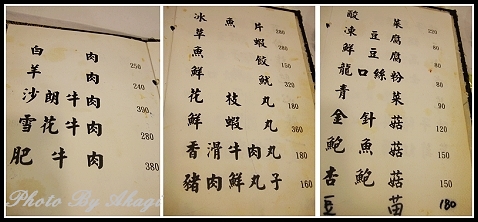 白肉 250
羊肉 240
沙朗牛肉 390
雪花牛肉 280
肥牛肉 380
Photo By Akagi
冰魚片 280
草蝦
魚餃 150
鮮魷 320
花枝丸 180
鮮蝦丸 360
香滑牛肉丸 180
豬肉鮮丸子 160
酸菜
凍豆腐
鮮豆腐
龍口絲粉
青菜
金針菇 120
鮑魚菇 150
杏鮑菇 150
豆苗 180